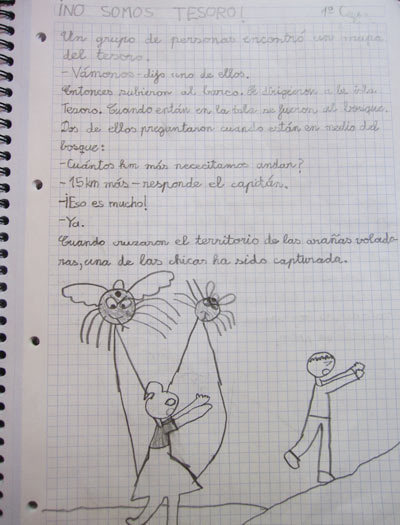 ¡NO SOMOS TESORO! 1º Cap.
Un grupo de personas encontró un mapa
del tesoro.
- Vámonos - dijo uno de ellos.
Entonces subieron al barco. Se dirigieron a la isla
Tesoro. Cuando están en la isla se fueron al bosque.
Dos de ellos preguntaron cuando están en medio del
bosque:
- Cuántos km más nececitamos andar?
- 15 km más - responde el capitán.
- ¡Eso es mucho!
- Ya.
Cuando cruzaron el territorio de las arañas volado-
ras, una de las chicas ha sido capturada.